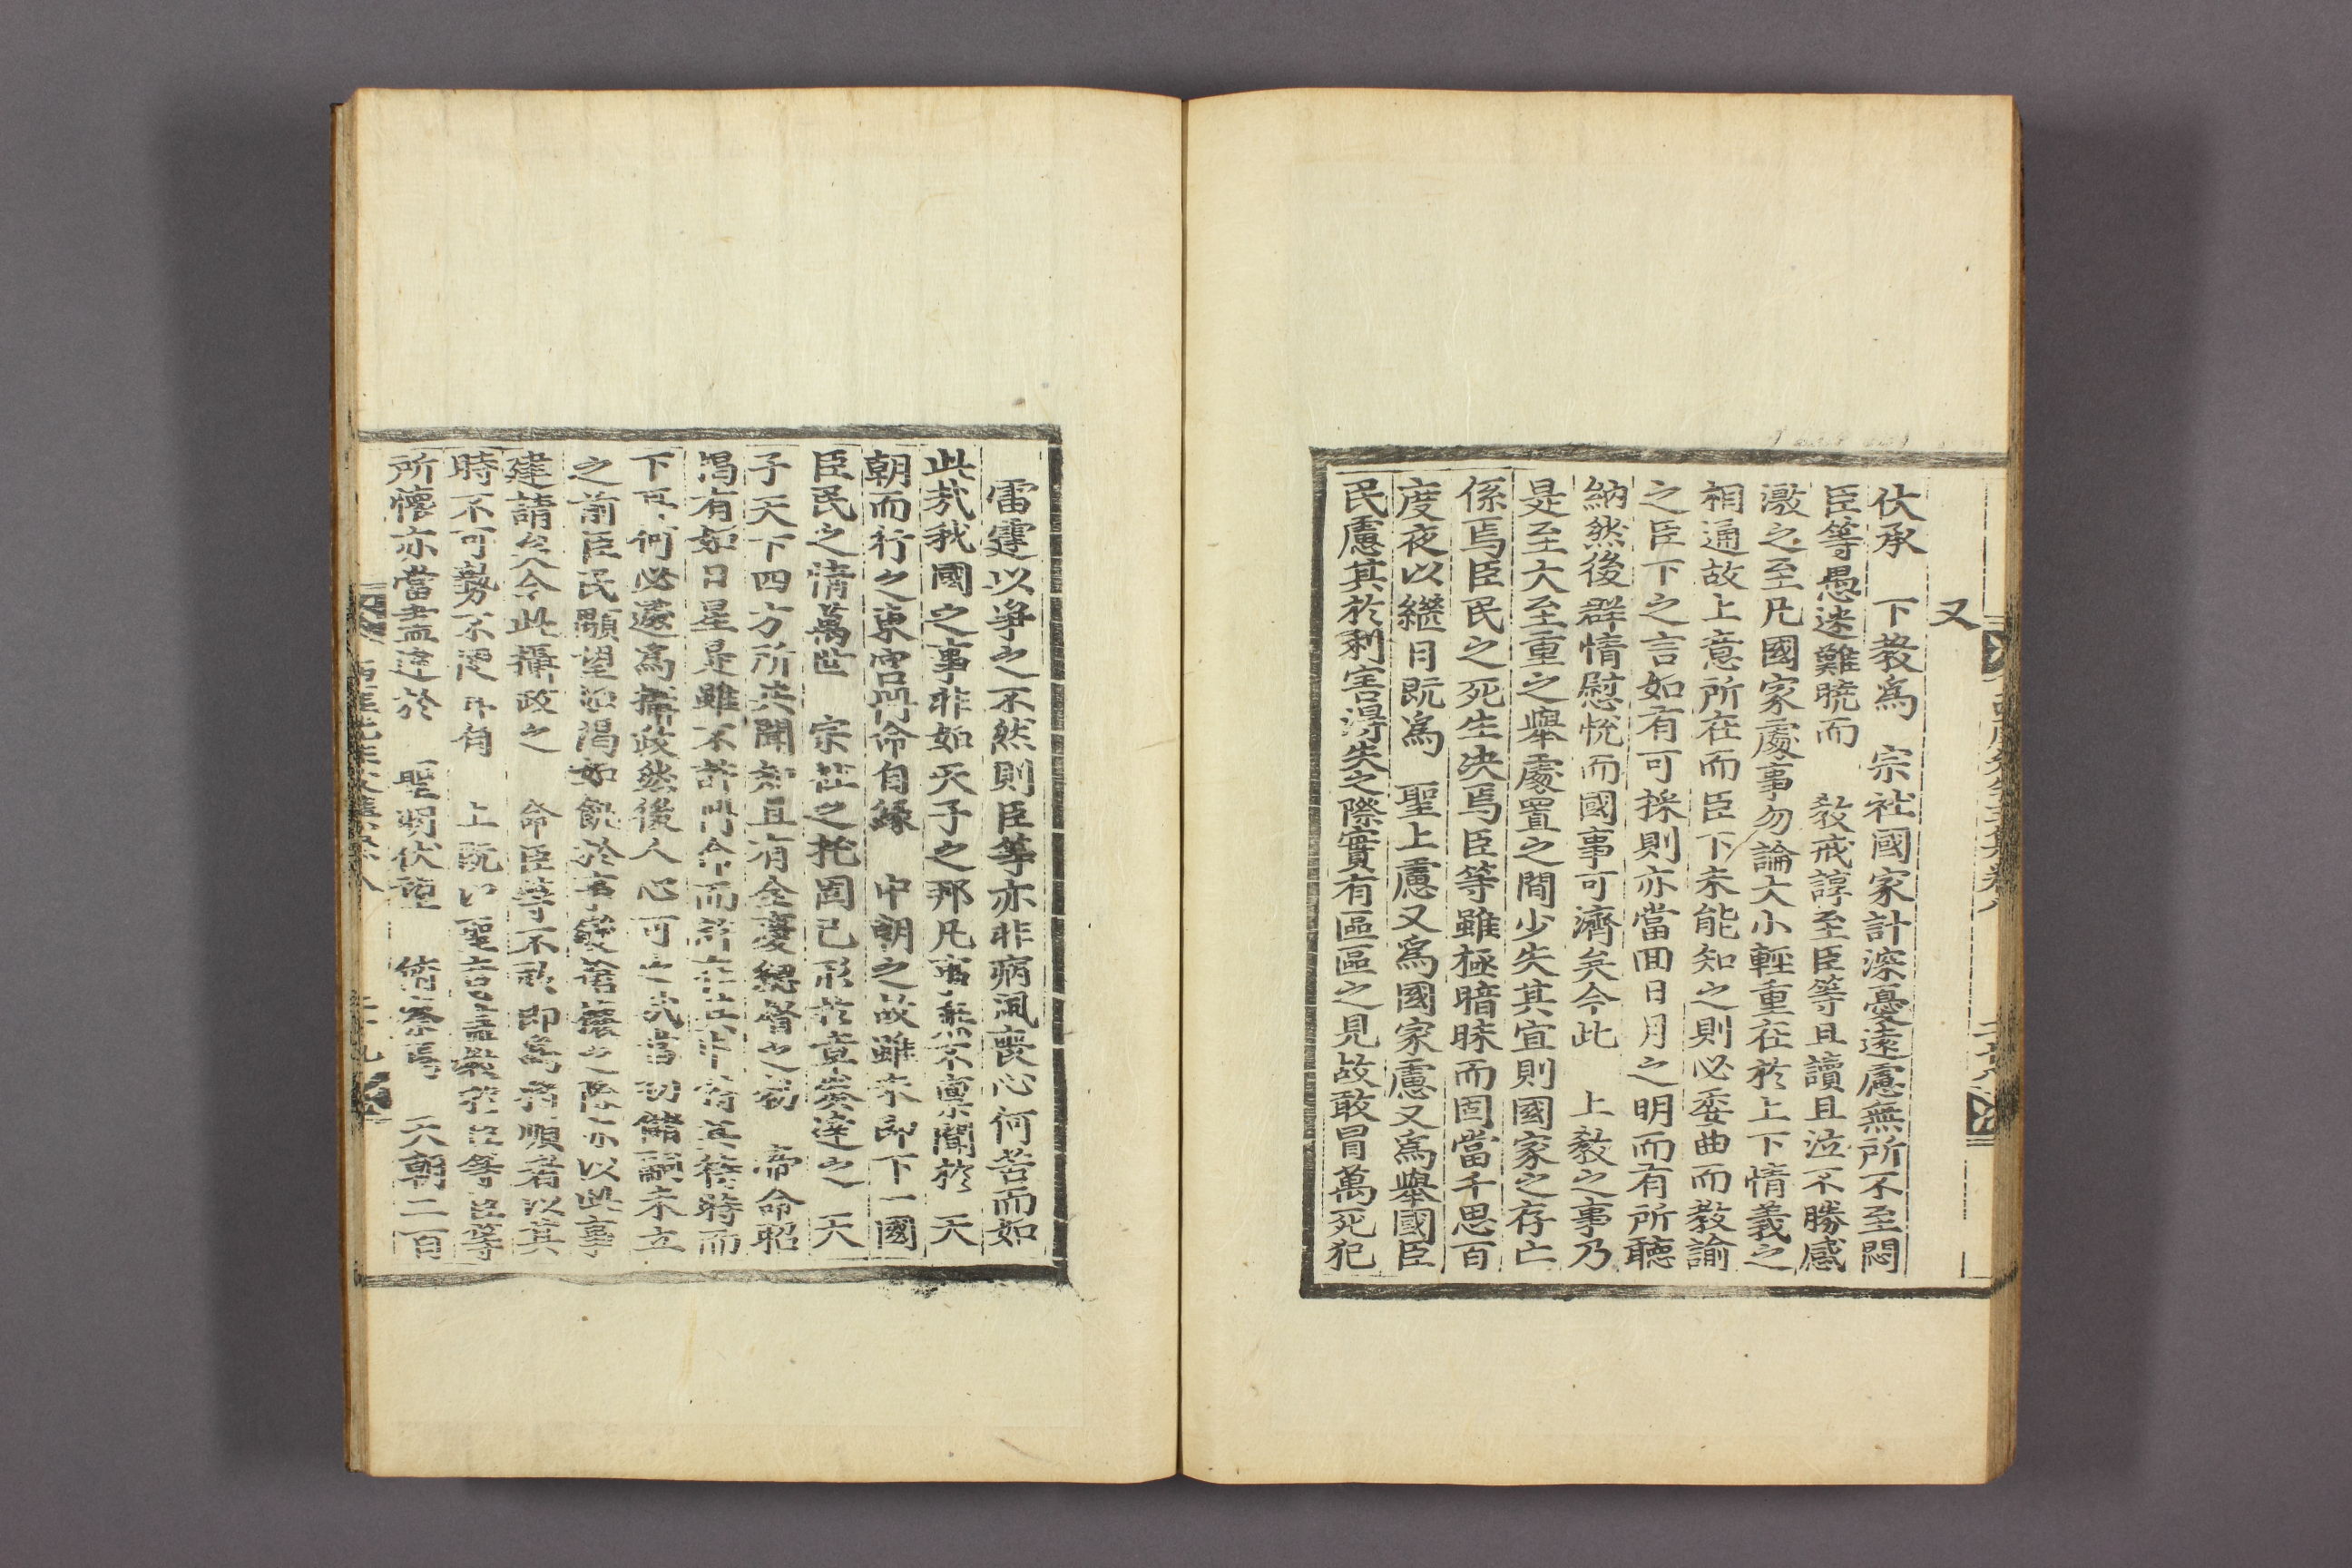 又
伏承 下教爲 宗社國家計深憂遠慮無所不至悶
臣等愚迷難曉而 敎戒諄至臣等且讀且泣不勝感
激之至凡國家處事勿論大小輕重在於上下情義之
相通故上意所在而臣下未能知之則必委曲而敎諭
之臣下之言如有可採則亦當回日月之明而有所聽
納然後群情慰悅而國事可濟矣今此 上敎之事乃
是至大至重之擧處置之間少失其宜則國家之存亡
係焉臣民之死生決焉臣等雖極暗昧而固當千思百
度夜以繼日旣爲 聖上慮又爲國家慮又爲擧國臣
民慮其於利害得失之際實有區區之見故敢冒萬死犯
雷霆以爭之不然則臣等亦非病風喪心何苦而如
此哉我國之事非如天子之邦凡事無不稟聞於 天
朝而行之東宮 命自緣 中朝之故雖未卽下一國
臣民之情萬世 宗社之托固已形於章奏達之 天
子天下四方所共聞知且有全慶總督之 帝命昭
揭有如日星是雖不 命而 時而
下 何必遽爲攝政然後人心可 哉當初儲嗣未立
之前臣民顒望 渴如飢於事變 之際亦以此事
建請矣今此攝政之 命臣等不敢卽爲將順者以其
時不可勢不 有 上旣以聖 臣等臣等
所懷亦當盡達於 聖明伏 察焉 天朝二百